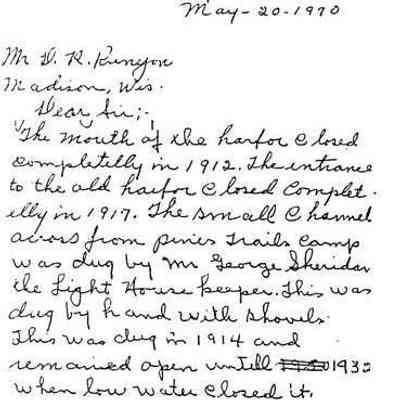 May-20-1970
Mr D. K. Runyon
Madison, Wis.
Dear Sir;-
The Mouth of the harfor Closed
completilly in 1912. The entrance
to the old harfor Closed Complet-
illy in 1917. The small Channel
across from pines Trails Camp
was dug by Mr George Sheridan
the Light House keeper. This was
dug by hand with shovels.
This was dug in 1914 and
remained open untill 1932
when low water closed it.